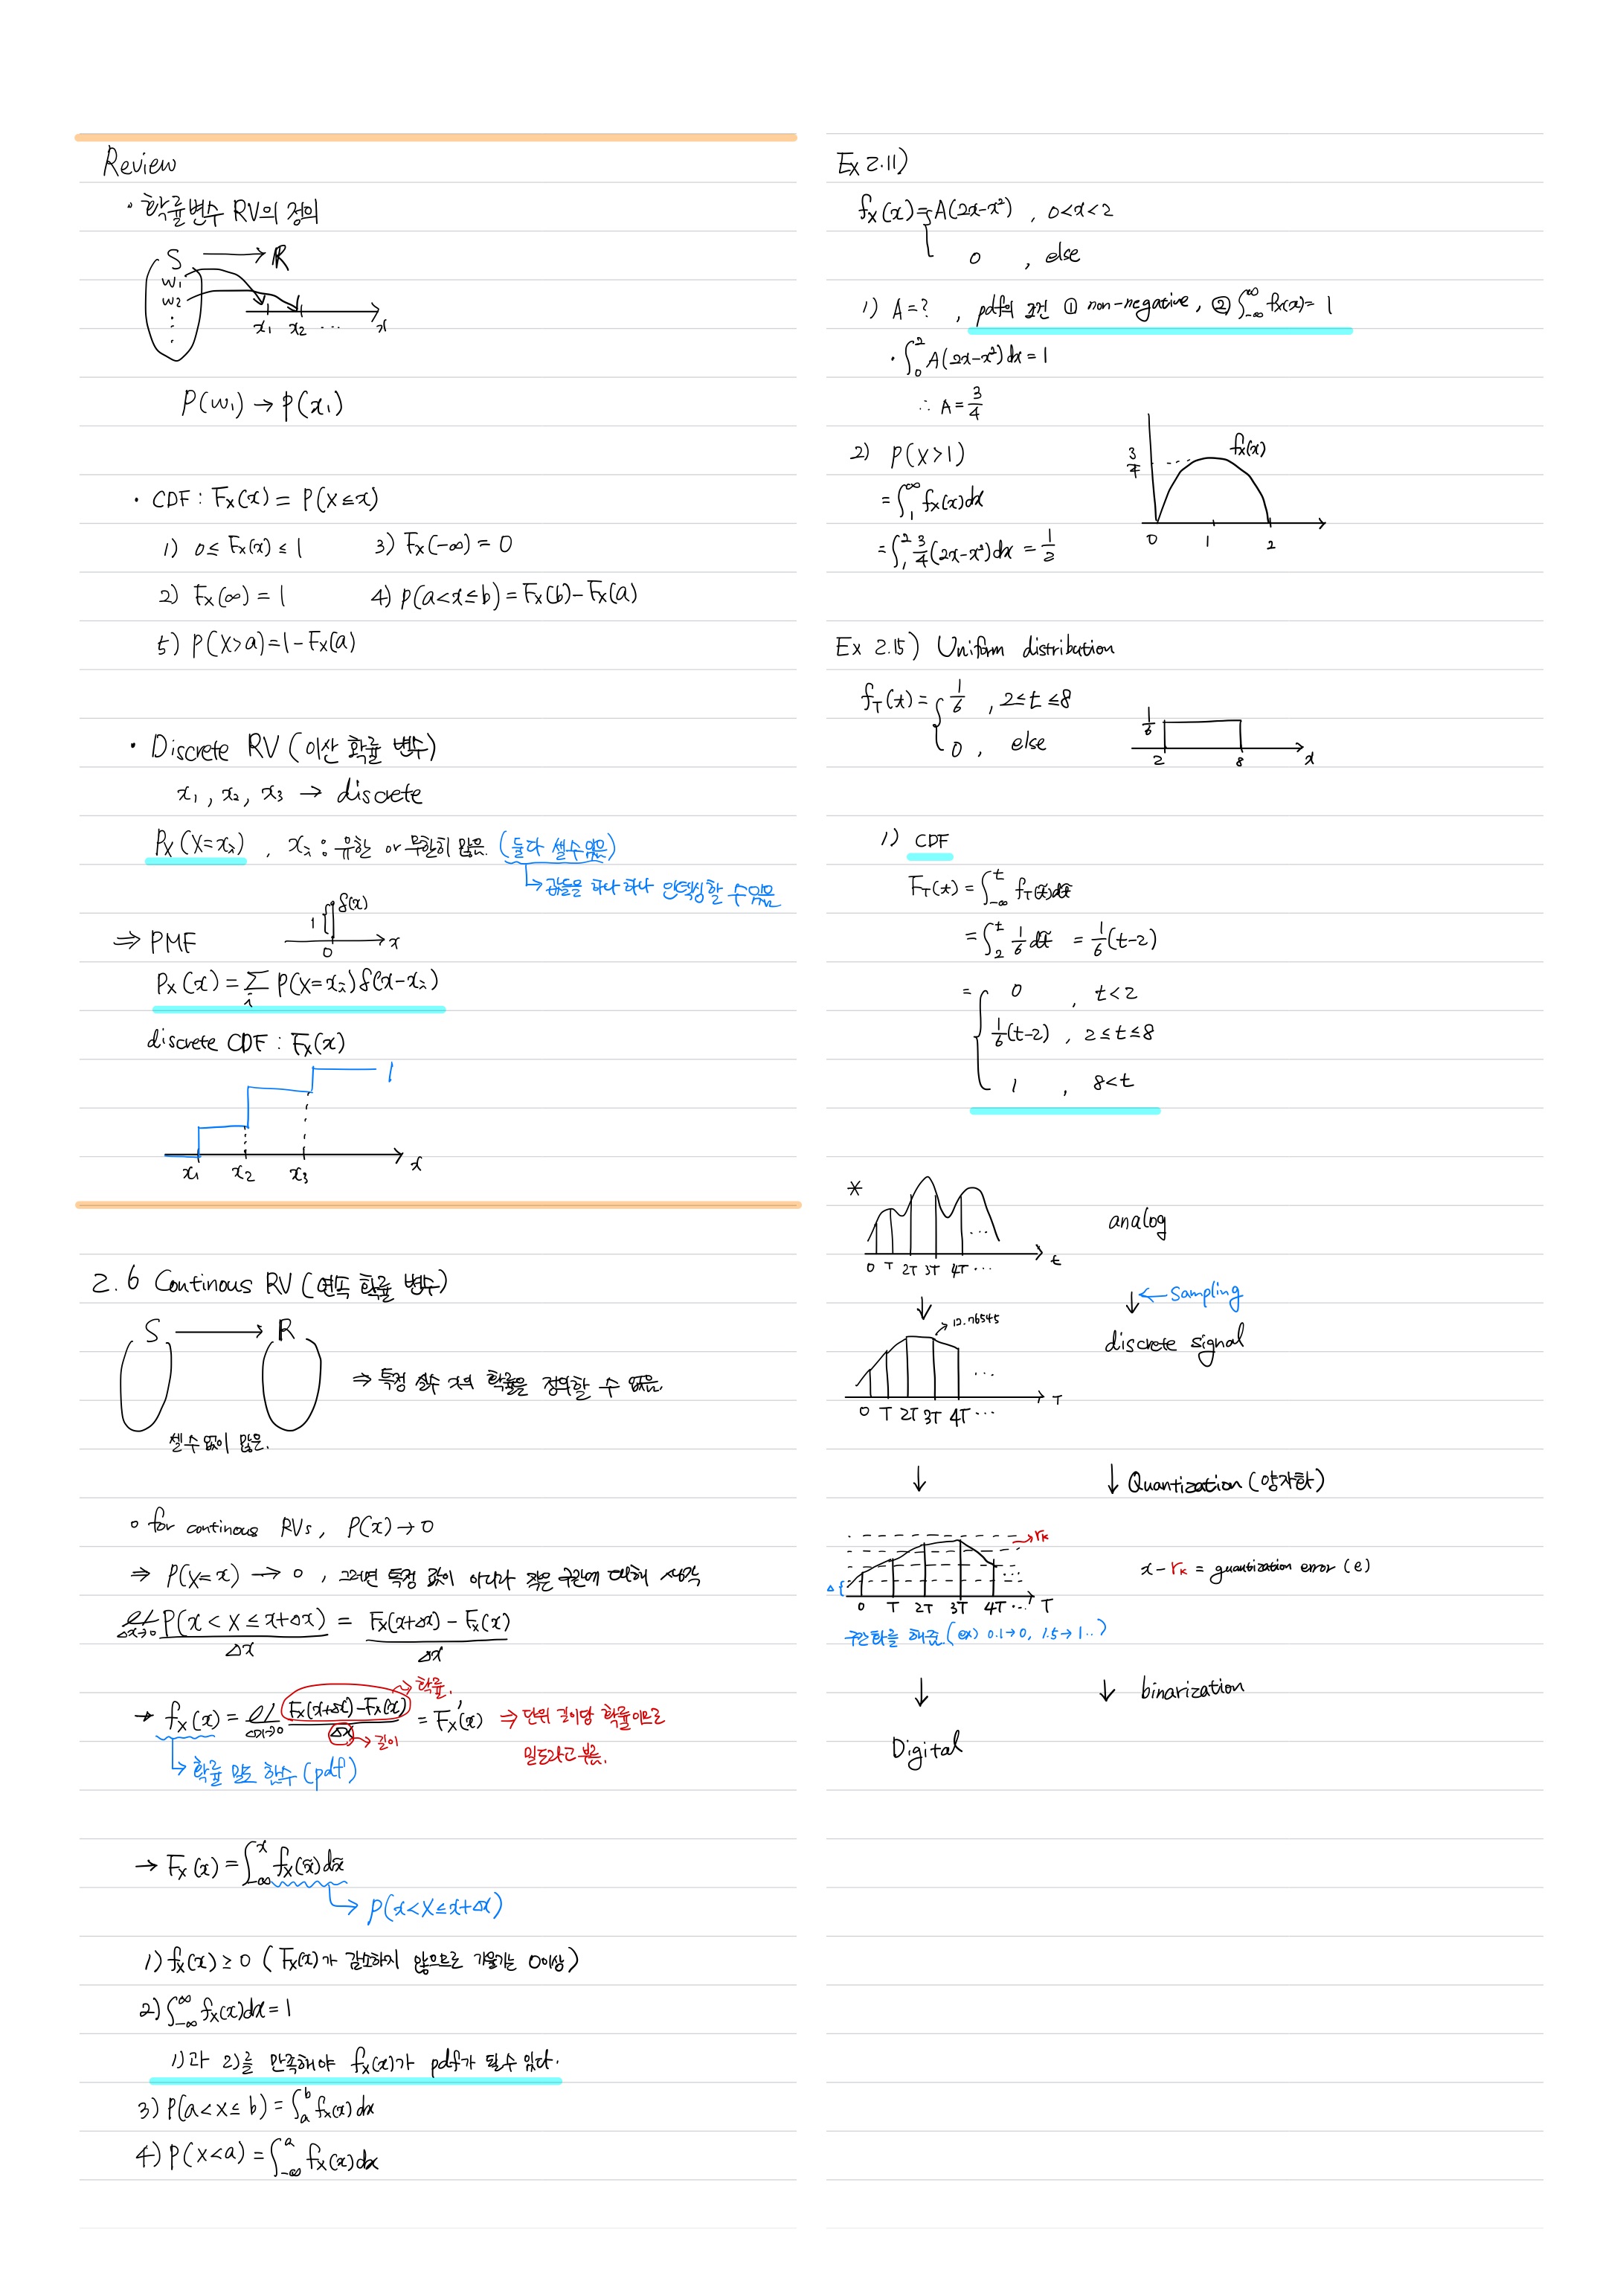 Review
· 확률변수 RV의 정의
S → R
w₁
w₂
x₁ x₂ ... x
P(w₁) → P(x₁)
· CDF : Fx(x) = P(X≤x)
1) 0≤ Fx(x) ≤ 1 3) Fx(-∞) = 0
2) Fx(∞) = 1 4) P(a<x≤b) = Fx(b) - Fx(a)
5) P(X>a) = 1 - Fx(a)
· Discrete RV (이산 확률 변수)
x₁, x₂, x₃ → discrete
Px(X=xᵢ) , xᵢ : 유한 or 무한히 많은. (둘다 셀수있음)
↳ 값들을 하나 하나 인덱싱할 수 있음
1 δ(x)
⇒ PMF
0 x
Px(x) = Σᵢ P(X=xᵢ) δ(x-xᵢ)
discrete CDF : Fx(x)
1
x₁ x₂ x₃ x
2.6 Continous RV (연속 확률 변수)
S → R
⇒ 특정 실수 x의 확률을 정의할 수 없음.
셀 수 없이 많은.
◦ for continous RVs, P(x) → 0
⇒ P(X=x) → 0 , 그러면 특정 값이 아니라 작은 구간에 대해 생각
lim Δx→0 P(x < X ≤ x+Δx) / Δx = Fx(x+Δx) - Fx(x) / Δx
→ 확률.
→ fx(x) = lim Δx→0 Fx(x+Δx) - Fx(x) / Δx = Fx'(x) ⇒ 단위 길이당 확률이므로
→ 길이 밀도라고 부름.
↳ 확률 밀도 함수 (pdf)
→ Fx(x) = ∫₋∞ˣ fx(x̃)dx̃
↳ P(x<X≤x+Δx)
1) fx(x) ≥ 0 ( Fx(x)가 감소하지 않으므로 기울기는 0이상 )
2) ∫₋∞^∞ fx(x)dx = 1
1)과 2)를 만족해야 fx(x)가 pdf가 될수 있다.
3) P(a<x≤b) = ∫ₐᵇ fx(x)dx
4) P(x<a) = ∫₋∞ᵃ fx(x)dx
Ex 2.11)
fx(x) = { A(2x-x²) , 0<x<2
0 , else
1) A=? , pdf의 조건 ① non-negative, ② ∫₋∞^∞ fx(x) = 1
· ∫₀² A(2x-x²)dx = 1
∴ A = 3/4
2) P(X>1)
= ∫₁^∞ fx(x)dx
= ∫₁² 3/4(2x-x²)dx = 1/2
3/4 fx(x)
0 1 2
Ex 2.15) Uniform distribution
fT(t) = { 1/6 , 2≤t≤8
0 , else
1/6
2 8 x
1) CDF
FT(t) = ∫₋∞ᵗ fT(t̃)dt̃
= ∫₂ᵗ 1/6 dt̃ = 1/6(t-2)
= { 0 , t<2
1/6(t-2) , 2≤t≤8
1 , 8<t
* analog
...
0 T 2T 3T 4T ... t
↓ ↓ ← Sampling
→ 12.76545
discrete signal
...
0 T 2T 3T 4T ... T
↓ ↓ Quantization (양자화)
→ rₖ
x - rₖ = quantization error (e)
Δ
0 T 2T 3T 4T ... T
구간화를 해줌. (ex) 0.1→0, 1.5→1 ..)
↓ ↓ binarization
Digital